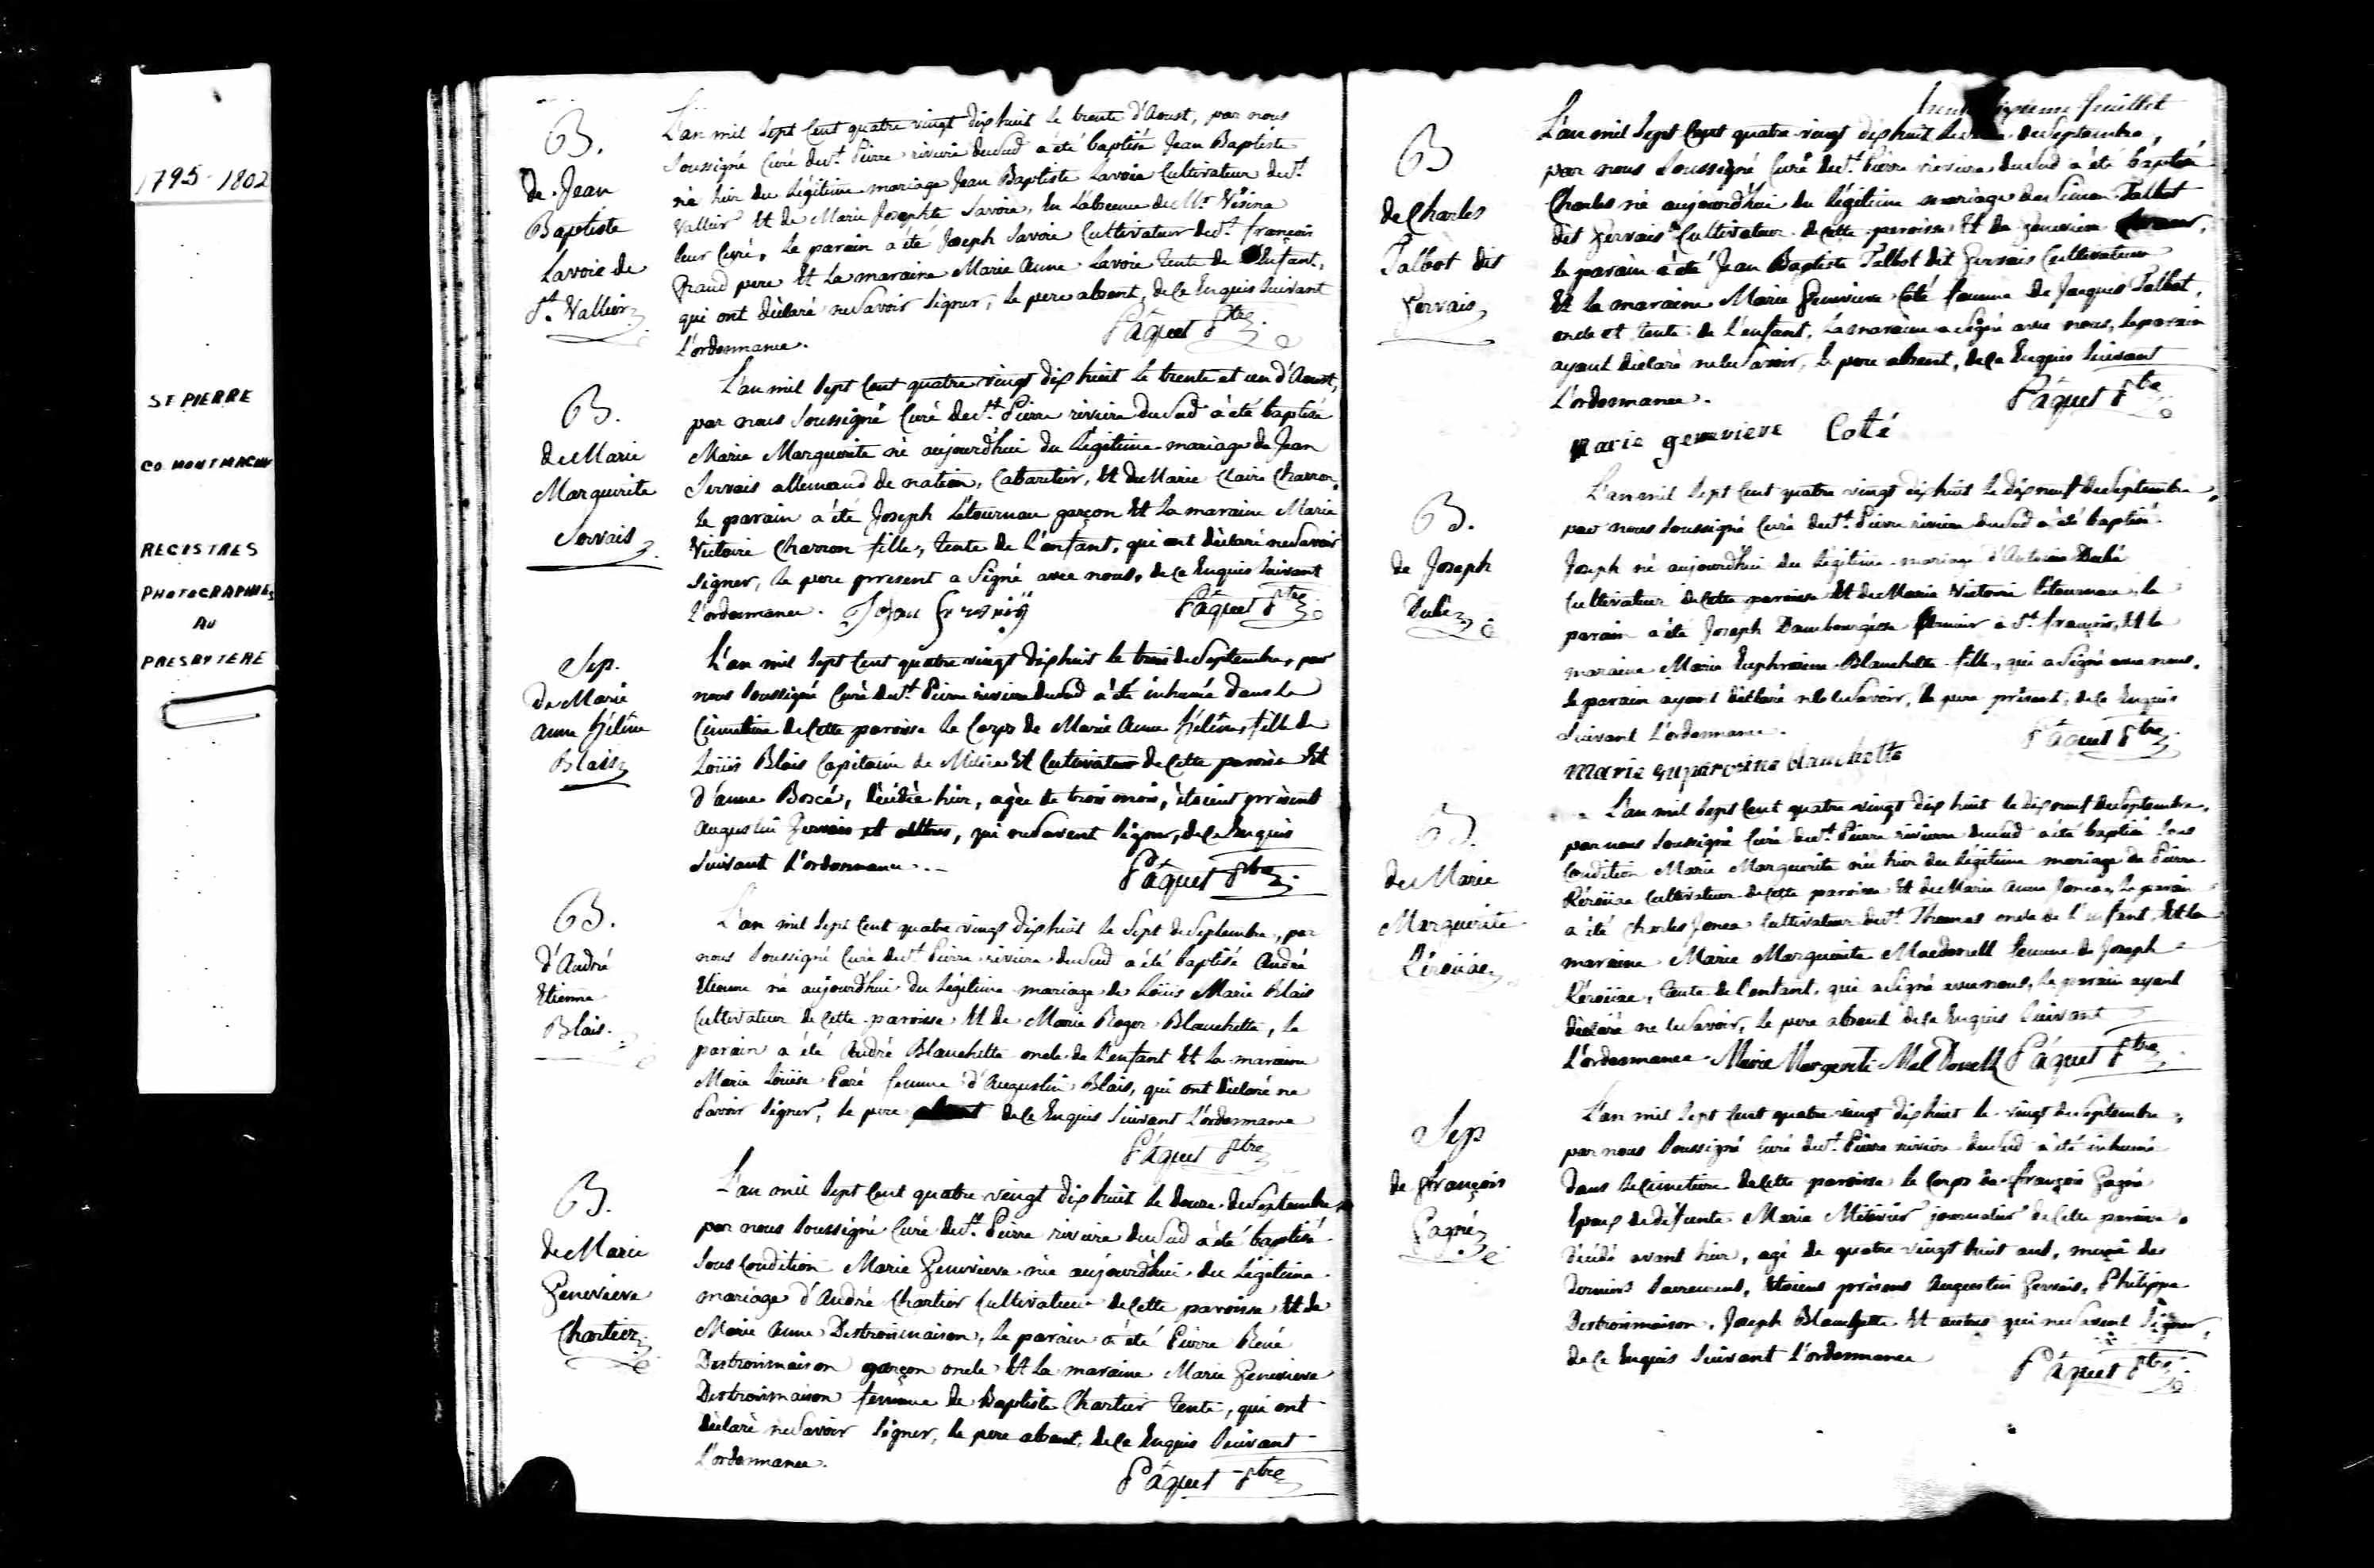 1795-1802
ST PIERRE
CO MONTMAGNY
REGISTRES
PHOTOGRAPHIES
AU
PRESBYTERE
B.
de Jean
Baptiste
Lavoie de
St. Vallier
L'an mil sept cent quatre vingt dix huit le trente d'Aoust, par nous
soussigné Curé de St. Pierre riviere du Sud a été baptisé Jean Baptiste
né hier du légitime mariage Jean Baptiste Lavoie Cultivateur de St.
Vallier Et de Marie Josephte Savoie, en l'absence de Mr
leur Curé, le parain a été Joseph Savoie Cultivateur de St. françois
Grand pere Et la maraine Marie Anne Lavoie tente de Enfant,
qui ont déclaré ne Savoir Signer, le pere absent, de ce Enquis Suivant
l'ordonnance.
Pâquet Ptre
B.
de Marie
Marguerite
Servais
L'an mil Sept Cent quatre vingt dix huit le trente et un d'Aoust,
par nous soussigné Curé de St. Pierre riviere du Sud a été baptisée
Marie Marguerite né aujourd'hui du légitime mariage de Jean
Servais allemand de nation, Cabaretier, Et de Marie Claire Charron,
le parain a été Joseph Létourneau garçon Et la maraine Marie
Victoire Charron fille, tente de l'enfant, qui ont déclaré ne Savoir
Signer, le pere present a Signé avec nous, de ce Enquis Suivant
l'ordonnance.
Pâquet Ptre
Sep.
de Marie
Anne Hélène
Blais
L'an mil Sept Cent quatre vingt dix huit le trois de Septembre, par
nous soussigné Curé de St. Pierre riviere du Sud a été inhumée dans le
Cimetiere de Cette paroisse le Corps de Marie Anne Hélène, fille de
Loüis Blais Capitaine de Milice Et Cultivateur de Cette paroisse Et
d'Anne Boscé, décédée hier, agée de trois mois, étoient présent
Augustin Gervais et autres, qui ne Savent Signer, de ce Enquis
Suivant l'ordonnance.
Pâquet Ptre
B.
d'André
Etienne
Blais.
L'an mil Sept Cent quatre vingt dix huit le Sept de Septembre, par
nous soussigné Curé de St. Pierre riviere du Sud a été baptisé André
Etienne né aujourd'hui du légitime mariage de Loüis Marie Blais
Cultivateur de Cette paroisse Et de Marie Roger Blanchette, le
parain a été André Blanchette oncle de l'enfant Et la maraine
Marie Loüise Paré femme d'Augustin Blais, qui ont déclaré ne
Savoir Signer, le pere absent de ce Enquis Suivant l'ordonnance
Pâquet Ptre
B.
de Marie
Genevieve
Chartier
L'an mil Sept Cent quatre vingt dix huit le douze de Septembre
par nous soussigné Curé de St. Pierre riviere du Sud a été baptisé
Sous Condition Marie Genevieve née aujourd'hui du légitime
mariage d'André Chartier Cultivateur de Cette paroisse Et de
Marie Anne Destroismaison, le parain a été Pierre René
Destroismaison garçon oncle Et la maraine Marie Genevieve
Destroismaison femme de Baptiste Chartier tente, qui ont
déclaré ne Savoir Signer, le pere absent, de ce Enquis Suivant
l'ordonnance.
Pâquet Ptre
feuillet
B
de Charles
Talbot dit
Gervais
L'an mil Sept Cent quatre vingt dix huit le de Septembre,
par nous soussigné Curé de St. Pierre riviere du Sud a été baptisé
Charles né aujourd'hui du légitime mariage de Simon Talbot
dit Gervais Cultivateur de Cette paroisse Et de Genevieve
le parain a été Jean Baptiste Talbot dit Gervais Cultivateur
Et la maraine Marie Genevieve Coté femme de Jacques Talbot,
oncle et tente de l'enfant, la maraine a Signé avec nous, le parain
ayant déclaré ne le Savoir, le pere absent, de ce Enquis Suivant
l'ordonnance.
Pâquet Ptre
Marie genevieve Coté
B.
de Joseph
Dubé
L'an mil Sept Cent quatre vingt dix huit le dix neuf de Septembre,
par nous soussigné Curé de St. Pierre riviere du Sud a été baptisé
Joseph né aujourd'hui du légitime mariage d'Antoine Dubé
Cultivateur de Cette paroisse Et de Marie Victoire Létourneau, le
parain a été Joseph Dambourgesse à St. françois, Et la
maraine Marie Euphrosine Blanchette fille, qui a Signé avec nous,
le parain ayant déclaré ne le Savoir, le pere présent, de ce Enquis
Suivant l'ordonnance.
Pâquet Ptre
Marie euparosine blanchette
B.
de Marie
Marguerite
Kéroüac
L'an mil Sept Cent quatre vingt dix huit le dix neuf de Septembre,
par nous soussigné Curé de St. Pierre riviere du Sud a été baptisé Sous
Condition Marie Marguerite née hier du légitime mariage de Pierre
Kéroüac Cultivateur de Cette paroisse Et de Marie Anne Joncas, le parain
a été Charles Joncas Cultivateur de St. Thomas oncle de l'enfant, Et la
maraine Marie Marguerite Macdonell femme de Joseph
Kéroüac, tente de l'enfant, qui a Signé avec nous, le parain ayant
déclaré ne le Savoir, le pere absent de ce Enquis Suivant
l'ordonnance. Marie Pâquet Ptre
Sep
de françois
Gagné
L'an mil Sept Cent quatre vingt dix huit le vingt de Septembre,
par nous soussigné Curé de St. Pierre riviere du Sud a été inhumé
dans le Cimetiere de Cette paroisse le Corps de françois Gagné
Epoux de défunte Marie Métivier journalier de Cette paroisse
décédé avant hier, agé de quatre vingt huit ans, muni des
derniers Sacremens, étoient présens Augustin Gervais, Philippe
Destroismaison, Joseph Blanchette Et autres qui ne Savent Signer,
de ce Enquis Suivant l'ordonnance
Pâquet Ptre